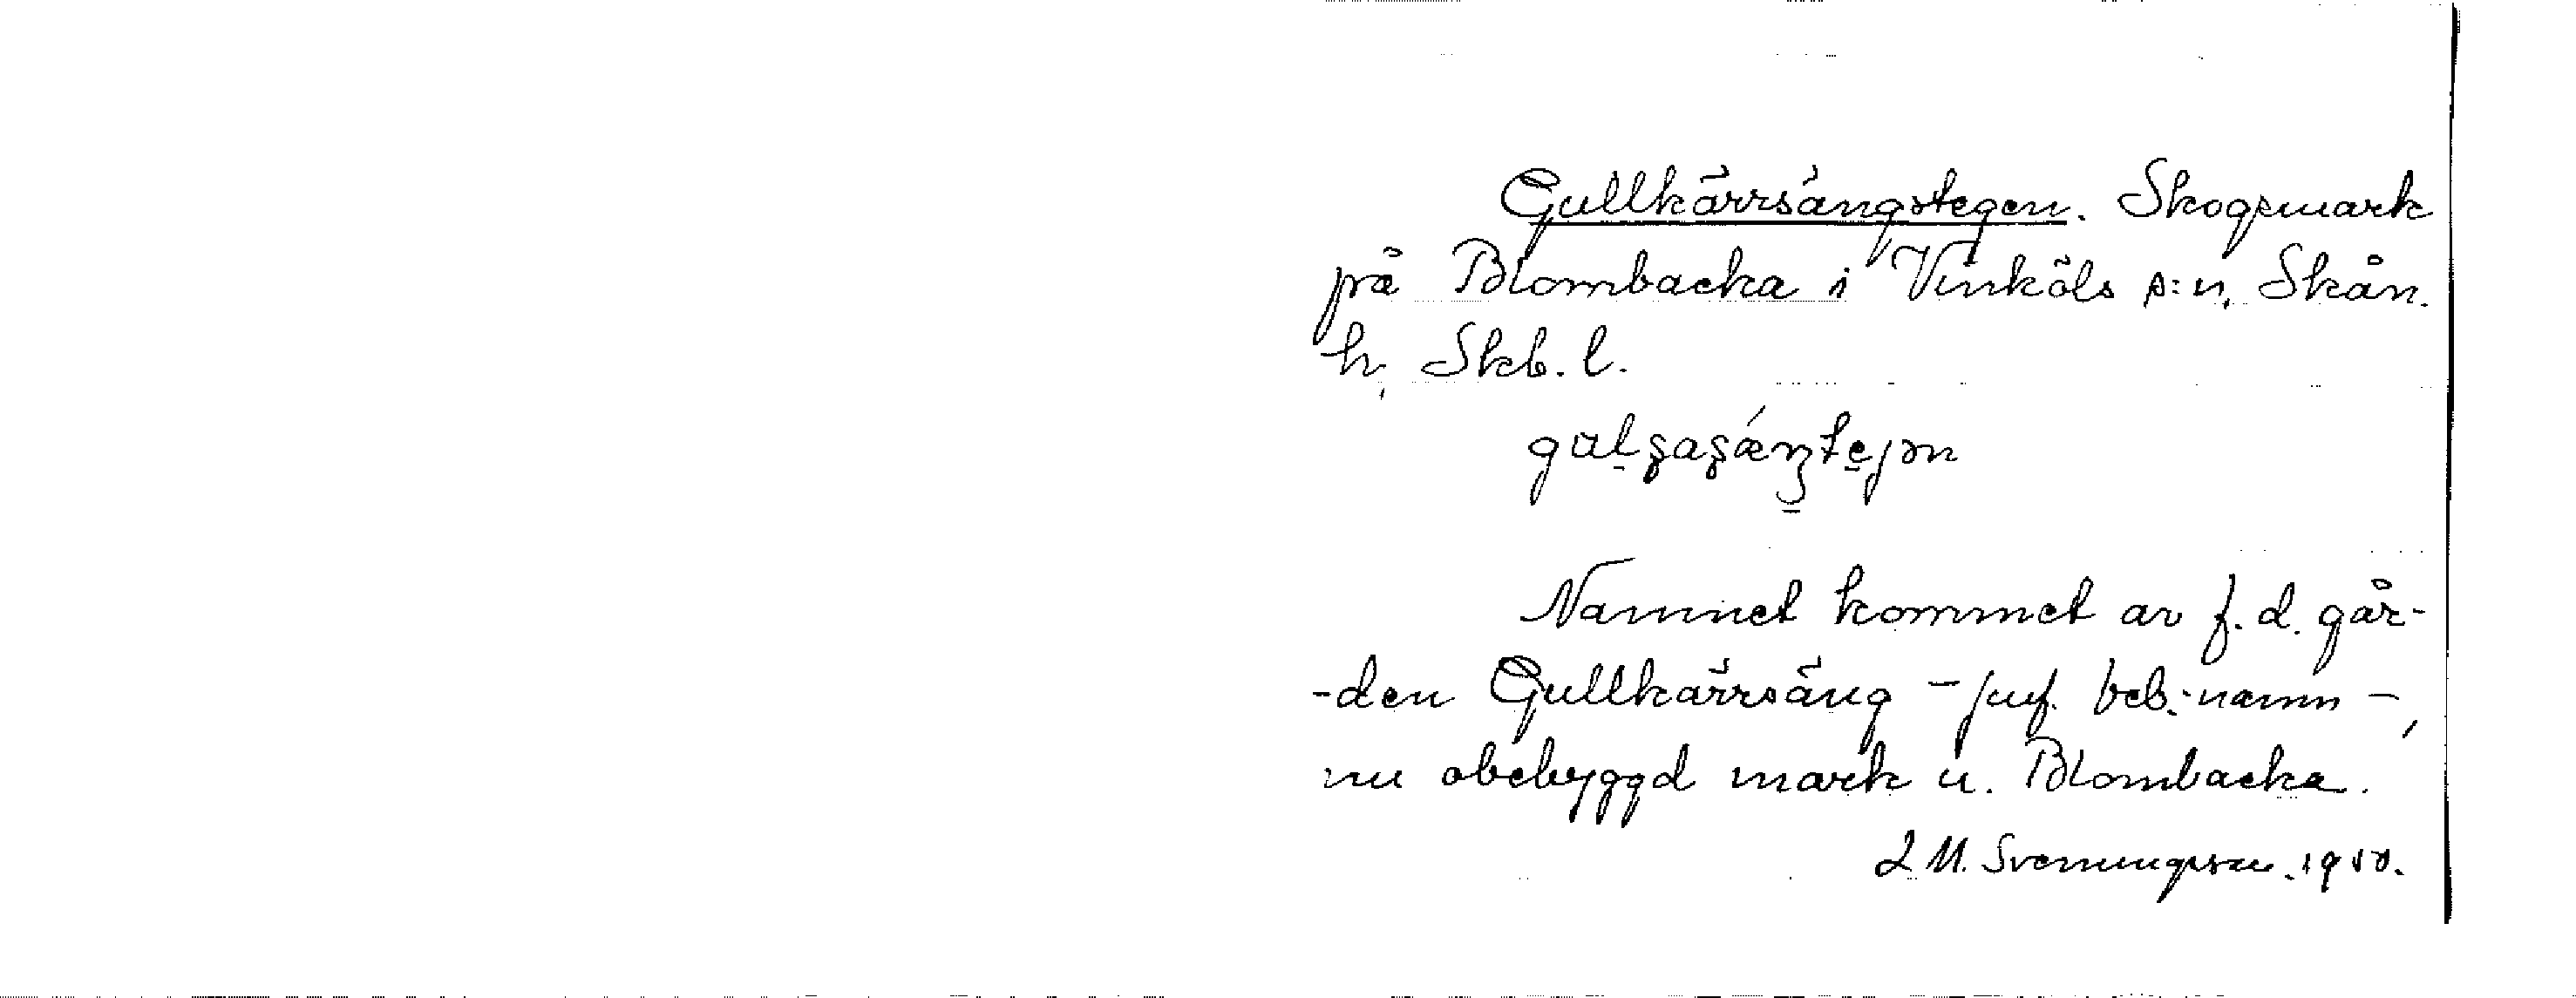 Gullkärrsängstegen. Skogsmark
på Blombacka i Vinköls s:n, Skån.
h, Skb. l.
Namnet kommet av f.d. går-
-den Gullkärrsäng - jmf. beb.-namn -,
nu obebyggd mark u. Blombacka.
L M. Svenungsson. 1950.